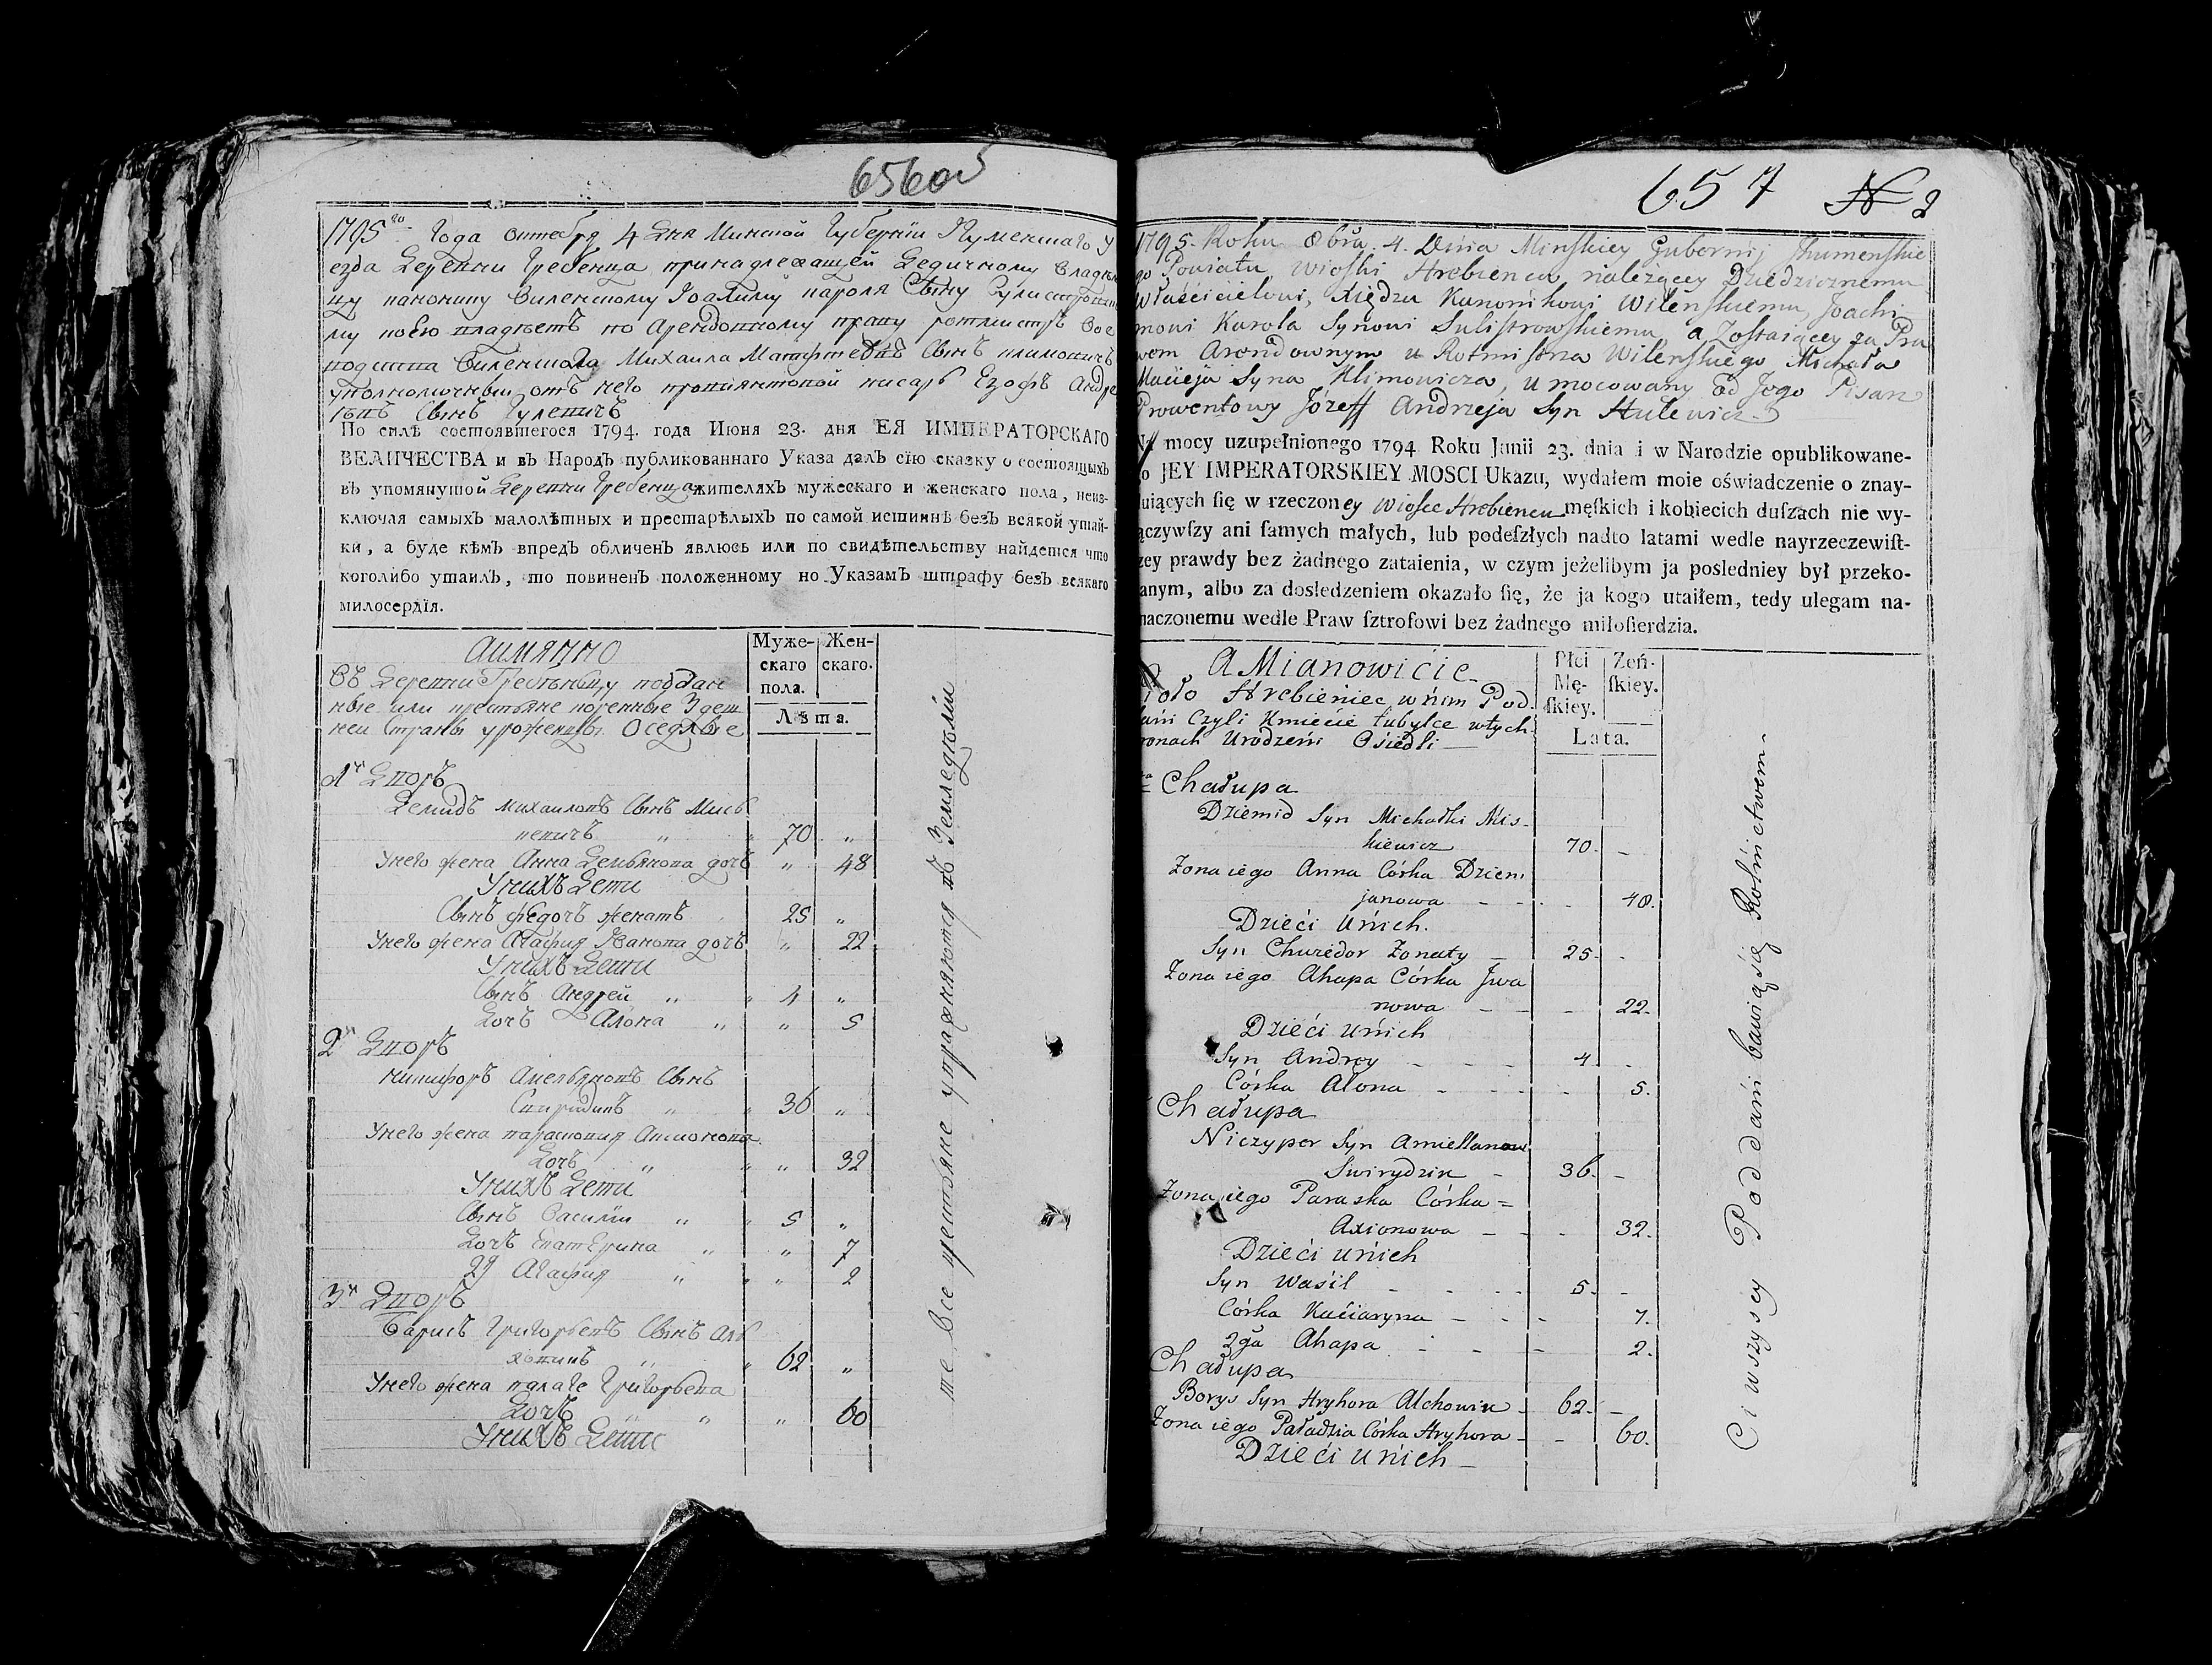 656об
1795го Года октебря 4 дня Минской Губернїи Игуменскаго у
езда деревни Гребенца принадлежащей дедичному владель
цу каноніку Виленскому Іоахиму Кароля сыну Сулистровско
му коею владъетъ по Арендовному праву ротмистръ вое
водства Виленскаго Михаила Матфеевъ сынъ климовичъ
уполномочный отъ него провіянтовой писарь Езофъ Андре
евъ сынъ Гулевичъ
По силѣ состоявшегося 1794. года Июня 23. дня ЕЯ ИМПЕРАТОРСКАГО
ВЕЛИЧЕСТВА и въ Народъ публикованнаго Указа далъ сїю сказку о состоящыхъ
въ упомянутой деревни Гребенца жителяхъ мужескаго и женскаго пола, неиз-
ключая самыхъ малолѣтныхъ и престарѣлыхъ по самой истиннѣ безъ всякой утай-
ки, а буде кѣмъ впредъ обличенъ явлюсь или по свидѣтельству найдется что
коголибо утаилъ, то повиненъ положенному по Указамъ штрафу безъ всякаго
милосердїя.
аимянно
Въ деревни Гребѣнцу поддан
ные или крестьяне коренные Здеш
ней Страны уроженцы Оседлые
Муже-
скаго
пола.
Жен-
скаго.
Лѣта.
1й Дворъ
Демидъ михаиловъ сынъ Мись
кевичъ " " 70 "
Унего жена Анна Демьянова дочъ " 48
Унихъ Дети
сынъ федоръ женатъ 25 "
Унего жена Агафия Иванова дочъ " 22
Унихъ Дети
сынъ Андрей " " 4 "
дочъ Алона " " 5
2й Дворъ
никифоръ Амельяновъ сынъ
Свиридивъ " " 36 "
Унего жена параскопия Аксионова
дочъ " " " 32
Унихъ Дети
сынъ Василїи " " 5 "
дочъ Екатерина " " 7
2я Агафия " " " 2
3й Дворъ
Барисъ Григорьевъ сынъ Аль
ховикъ " " 62 "
Унего жена палаге Григорьева
дочъ " " " 60
Унихъ Дети
те все крестьяне упражняются въ Земледелїи
657 N 2
1795. Roku Obra. 4. Dnia Minskiey Gubernij Jhumenskie
go Powiatu Wioski Hrebienca należącey Dziedzicznemu
Właścicielowi, Xiędzu Kanonikowi Wilenskiemu Joachi
mowi Karola Synowi Sulistrowskiemu, a Zostaiącey za Pra
wem Arendownym u Rotmistrza Wilenskiego Michała
Macieja Syna Klimowicza, Umocowany Od Jego Pisarz
Prowentowy Józeff Andrzeja Syn Hulewicz
W mocy uzupełnionego 1794 Roku Junii 23. dnia i w Narodzie opublikowane-
go JEY IMPERATORSKIEY MOSCI Ukazu, wydałem moie oświadczenie o znay-
duiących ſię w rzeczoney Wiosce Hrebiencu męſkich i kobiecich duſzach nie wy-
łączywſzy ani ſamych małych, lub podeſzłych nadto latami wedle nayrzeczewiſt-
szey prawdy bez żadnego zataienia, w czym jeżelibym ja posledniey był przeko-
nanym, albo za dosledzeniem okazało ſię, że ja kogo utaiłem, tedy ulegam na-
znaczonemu wedle Praw ſztrofowi bez żadnego miłoſierdzia.
A Mianowicie
Sioło Hrebieniec w nim Pod-
dani Czyli Kmiecie tubylce wtych
stronach Urodzeni Osiedli
Płci
Mę-
ſkiey.
Zeń-
ſkiey.
Lata.
Chałupa
Dziemid Syn Michałki Mis-
kiewicz 70. -
Żona iego Anna Córka Dziem
janowa - - - 48.
Dzieći Unich.
Syn Chwiedor Żonaty - 25. -
Żona iego Ahapa Córka Jwa
nowa - - - 22.
Dzieći Unich
Syn Andrey - - - 4 -
Córka Alona - - - - 5.
Chałupa
Niczyper Syn Amiellanow
Swirydzik - 36. -
Żona iego Paraska Córka =
Axionowa - - - 32.
Dzieći Unich
Syn Waśil - - - 5. -
Córka Kaciaryna - - - 7.
2ga Ahapa - - - 2.
Chałupa
Borys Syn Hryhora Alchowik - 62. -
Żona iego Paładzia Córka Hryhora - - 60.
Dzieći Unich -
Ci wszyscy Poddani bawią się Rolnictwem